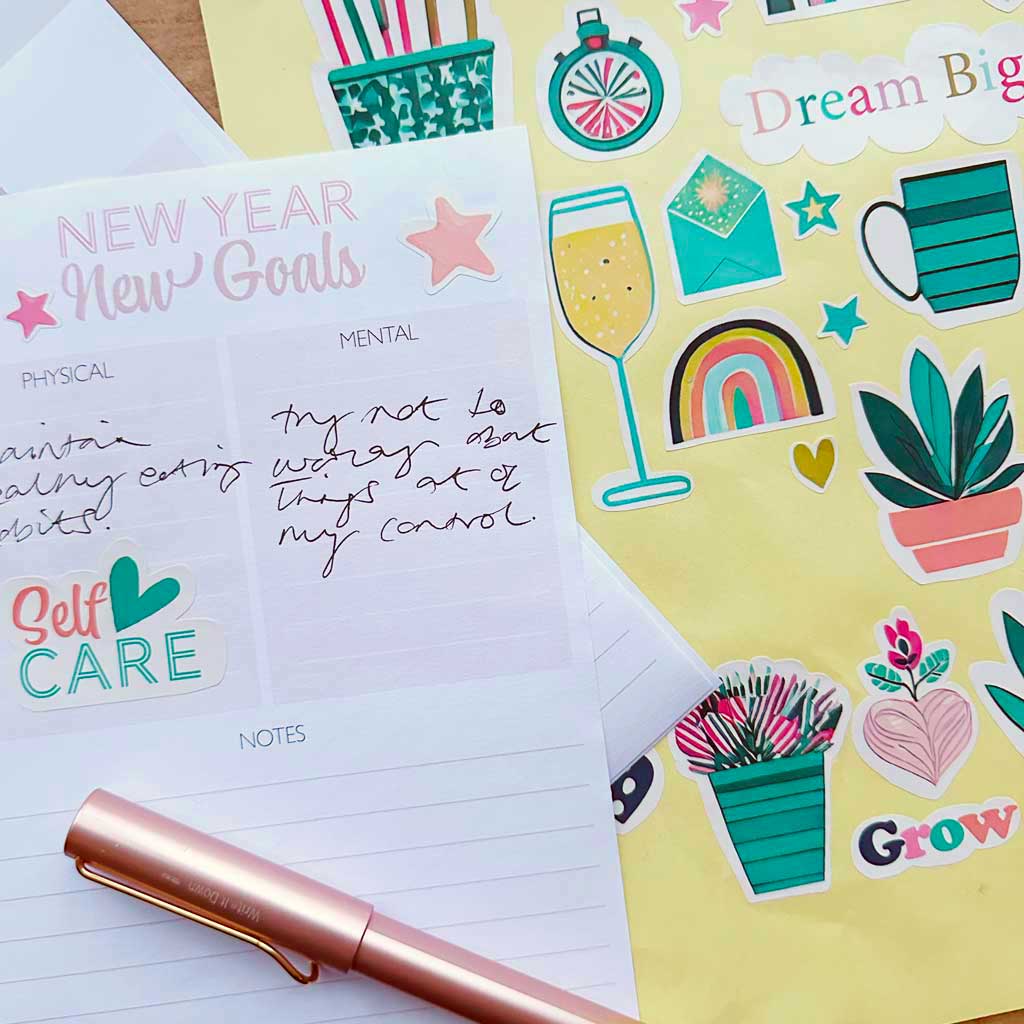 Dream Big
NEW YEAR
New Goals
PHYSICAL
aintain
ealthy eating
bits.
MENTAL
try not to
worry about
things out of
my control.
Self
CARE
NOTES
Write It Down
Grow